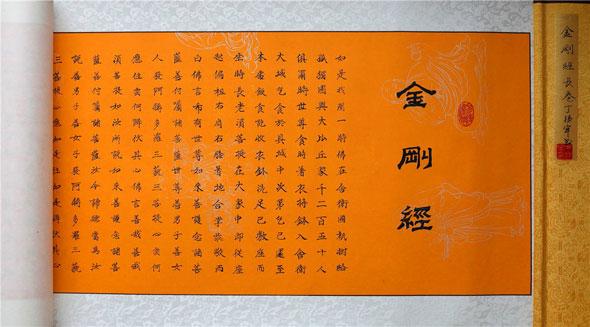 金剛經
如是我聞一時佛在舍衛國祇樹給
孤獨園與大比丘眾千二百五十人
俱爾時世尊食時著衣持鉢入舍衛
大城乞食於其城中次第乞已還至
本處飯食訖收衣鉢洗足已敷座而
坐時長老須菩提在大眾中即從座
起偏袒右肩右膝著地合掌恭敬而
白佛言希有世尊如來善護念諸菩
薩善付囑諸菩薩世尊善男子善女
人發阿耨多羅三藐三菩提心云何
應住云何降伏其心佛言善哉善哉
須菩提如汝所說如來善護念諸菩
薩善付囑諸菩薩汝今諦聽當為汝
說善男子善女人發阿耨多羅三藐
三菩提心應如是住如是降伏其心
金剛經長卷丁